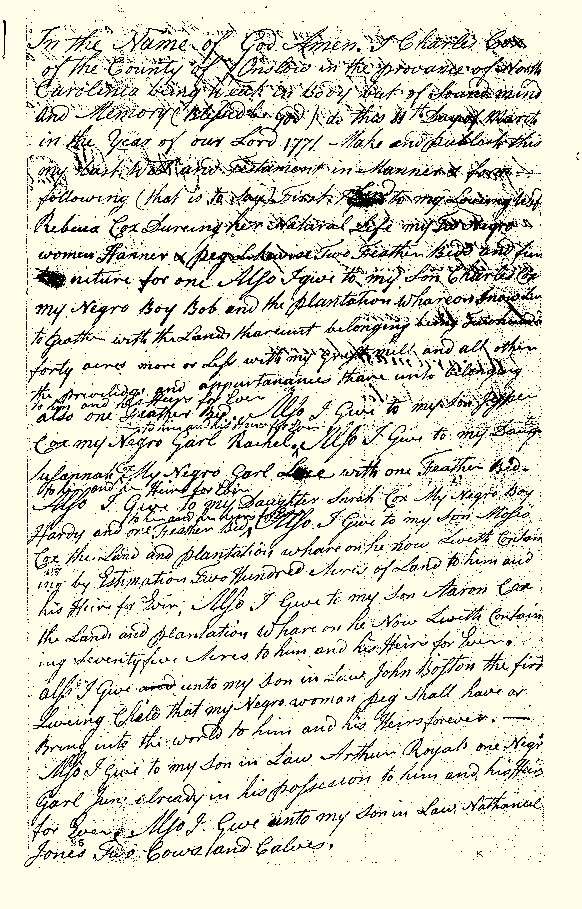 In the Name of God Amen. I Charles Cox
of the County of Onslow in the provance of North
Carolinea being weak in body but of Sound mind
and Memory (Blessed be God) do this 11th Day of March
in the Year of our Lord 1771 Make and publish this
my last Will and Testament in Manner & form
following (that is to Say) First I Lend to my Loveing Wife
Rebeca Cox Dureing her Natural Life my Two Negro
women Hanner & peg Likewise Two Feather Beds and fur
niture for one Also I give to my Son Charles Cox
my Negro Boy Bob and the plantation Whareon I now Live
to Geather with the Lands thareunto belonging being Two hundred
forty acres more or Less with my Grist Mill and all other
the preveledges and appurtanances thare unto belonging
to him and his Heirs for Ever
also one Feather Bed. Also I Give to my Son Jesper
to him and his Heirs for Ever
Cox my Negro Garl Rachel, Also I Give to my Daugr
Susannah My Negro Garl with one Feather Bed
to her and her Heirs for Ever
Also I Give to my Daughter Sarah Cox My Negro Boy
to her and her Heirs for Ever
Hardy and one Feather Bed, Also I Give to my Son Moses
Cox the Land and plantation whare on he now Liveth Contain
ing by Estimation Two Hundred Acres of Land to him and
his Heirs for Ever, Also I Give to my Son Aaron Cox
the Lands and plantation Whare on he Now Liveth Contain
ing Seventyfive Acres to him and his Heirs for Ever.
also I Give unto my Son in Law John Boston the first
Liveing Child that my Negro woman peg Shall have or
Bring into the world to him and his Heirs forever.
Also I Give to my Son in Law Arthur Royals one Negro
Garl June already in his possession to him and his Heirs
for Ever, Also I Give unto my Son in Law Nathanuel
Jones Two Cows and Calves.